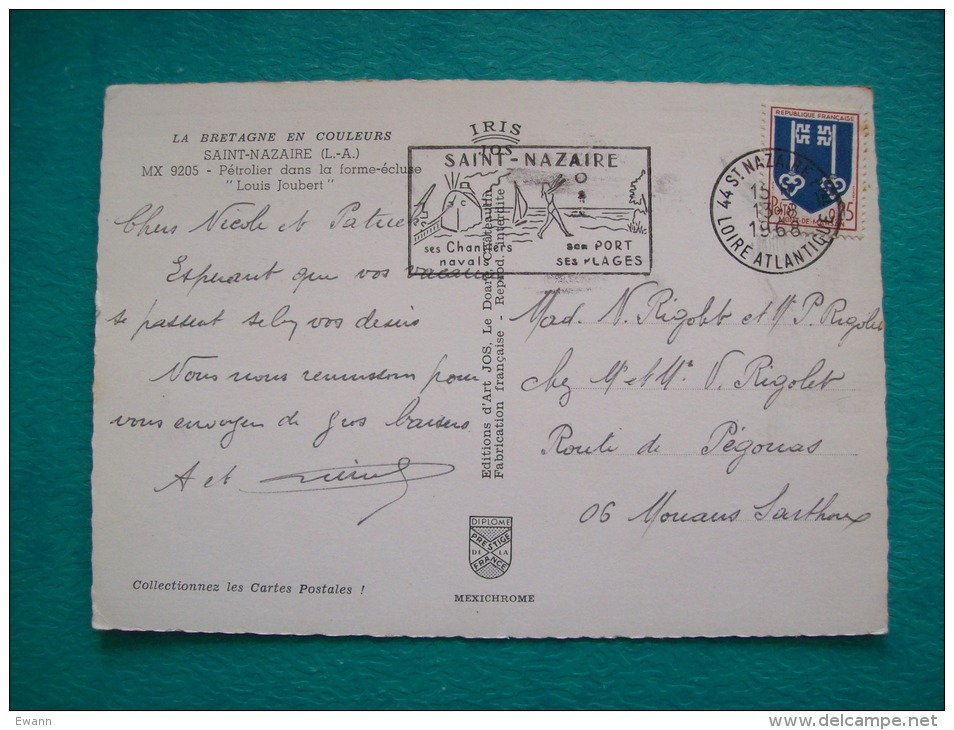 LA BRETAGNE EN COULEURS
SAINT-NAZAIRE (L.-A.)
MX 9205 - Pétrolier dans la forme-écluse
"Louis Joubert"
IRIS
JOS
SAINT-NAZAIRE
ses Chantiers
navals
son PORT
SES PLAGES
REPUBLIQUE FRANÇAISE
44 ST. NAZAIRE
13-8
1968
LOIRE ATLANTIQUE
Chers Nicole et Patrick
Esperant que vos vacances
se passent selon vos desirs
Nous nous réunissons pour
vous envoyer de gros baisers
A et
Editions d'Art JOS, Le Doaré, Châteaulin
Fabrication française - Reprod. interdite
Mad. N. Rigolet et Mr P. Rigolet
chez Mr et Mme V. Rigolet
Route de Pégomas
06 Mouans Sarthoux
DIPLOME
PRESTIGE
DE LA
FRANCE
Collectionnez les Cartes Postales !
MEXICHROME
Ewann
www.delcampe.net